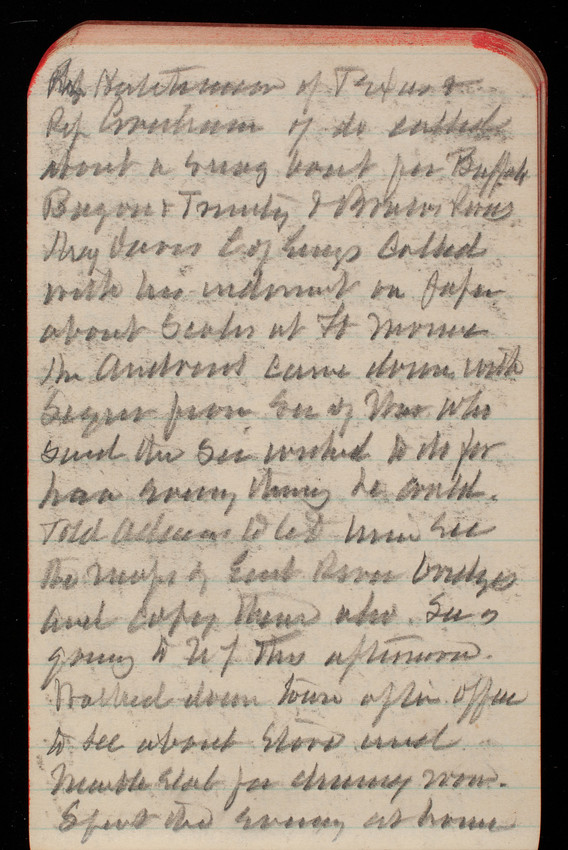 Rep Hutcheson of Texas &
Rep Crowham of do called
about a snag boat for Buffalo
Bayou & Trinity & Brazos Rivers
Davis C of Engs called
with his indorsmt on paper
about Scales at Ft Monroe
Mr Andrews came down with
from Sec of War who
said the Sec wished to do for
him every thing he could.
Told Adams to let him see
the maps of East River bridges
and copy them also. Sec is
going to N Y this afternoon.
Walked down town after office
to see about Stove and
Marble Slab for dining room.
Spent the evening at home